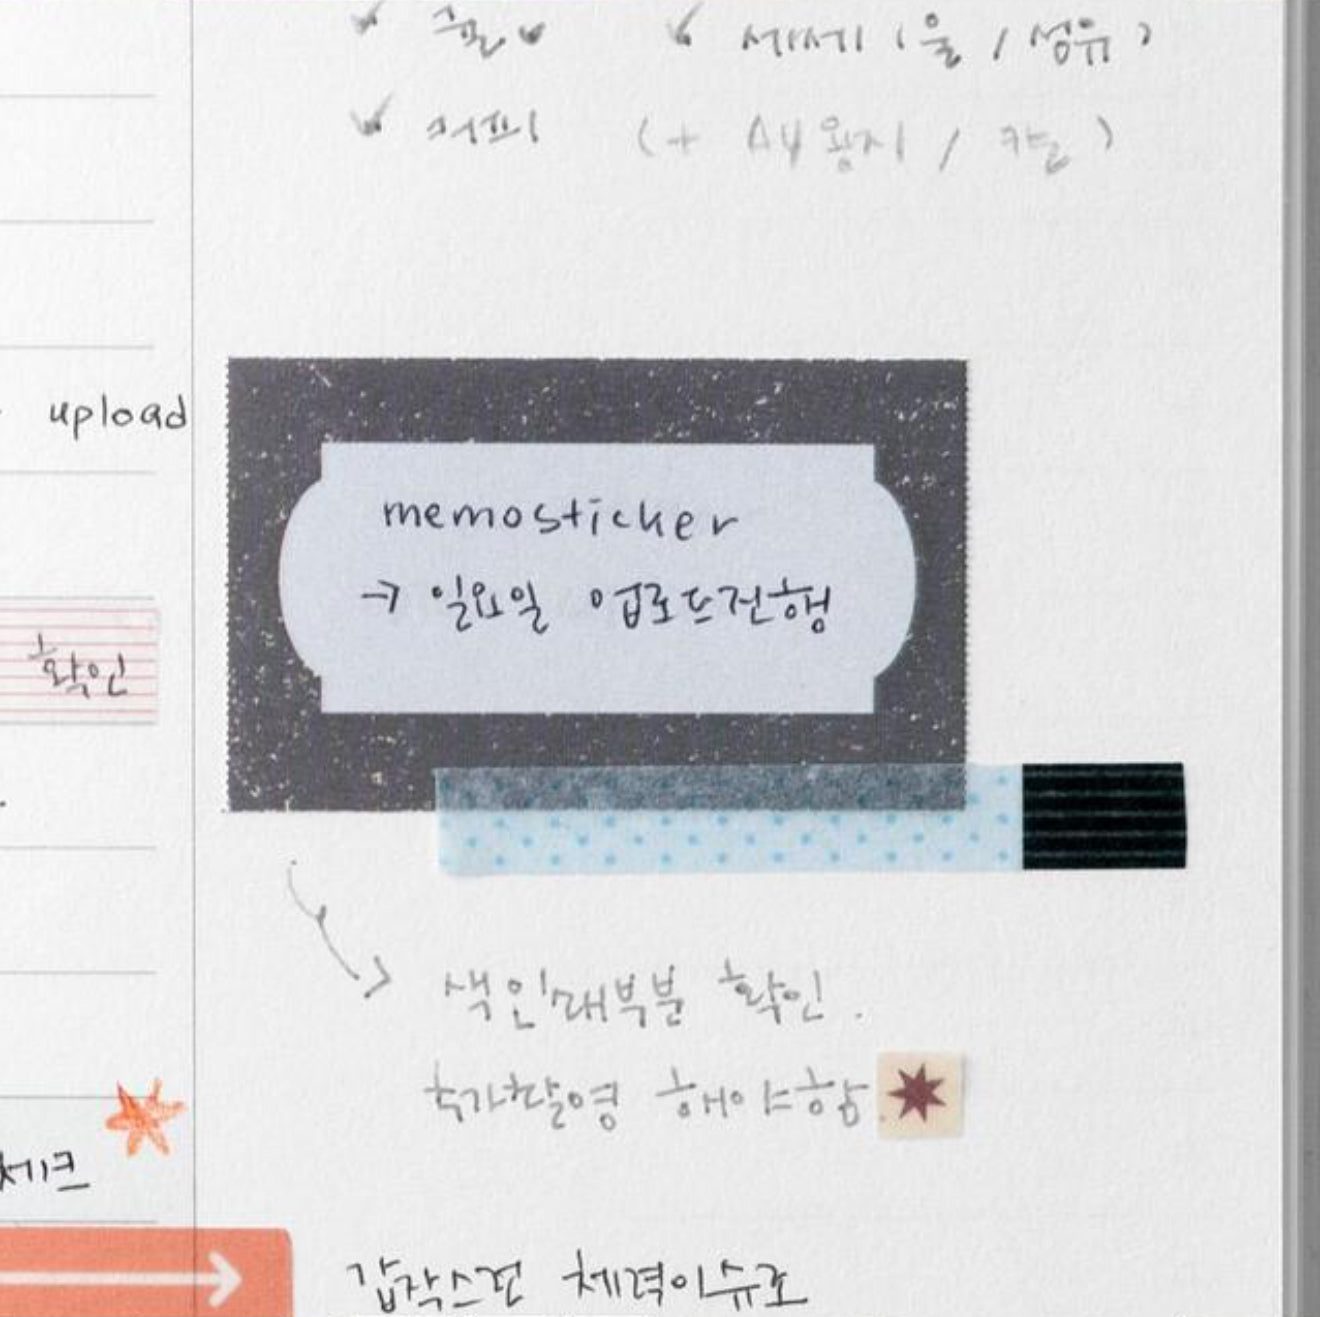 ✓ 귤 ✓ 세제 (울 / 섬유)
✓ 커피 (+ A4용지 / 칼)
upload
memosticker
→ 일요일 업로드진행
확인
색인내부분 확인.
추가촬영 해야함.
체크
갑작스런 체력이슈로